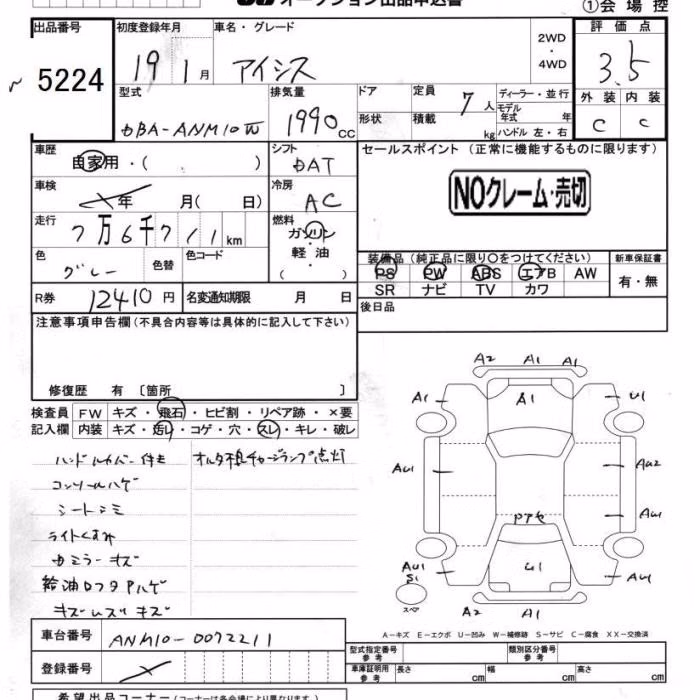 オークション出品申込書
①会場控
出品番号 5224
初度登録年月 19 1月
車名・グレード アイシス
2WD・4WD
評価点 3.5
外装 C 内装 C
型式 DBA-ANM10W
排気量 1990cc
ドア
形状
定員 7人
積載 kg
ディーラー・並行
モデル年式 年
ハンドル 左・右
車歴 自家用・( )
シフト DAT
車検 年 月( 日)
冷房 AC
走行 7万6千711km
燃料 ガソリン・軽油 ( )
色 グレー
色替
色コード
R券 12410円
名変通知期限 月 日
セールスポイント (正常に機能するものに限ります)
NOクレーム・売切
装備品 (純正品に限り○をつけてください)
新車保証書
PS PW ABS エアB AW
有・無
SR ナビ TV カワ
後日品
注意事項申告欄(不具合内容等は具体的に記入して下さい)
修復歴 有 〔箇所 〕
検査員記入欄
FW キズ・飛石・ヒビ割・リペア跡・×要
内装 キズ・汚レ・コゲ・穴・スレ・キレ・破レ
ハンドルカバー付き
オルタ不良チャージランプ点灯
コンソールハゲ
シートシミ
ライトくすみ
キズ
給油口フタ ハゲ
キズレズキズ
A2 A1 A1
A1 A1 U1
AU1 AU2
AU1
AU1 S1 U1 AU1
スペア
A2 A1
A-キズ E-エクボ U-凹み W-補修跡 S-サビ C-腐食 XX-交換済
車台番号 ANM10-0072211
登録番号
型式指定番号 参考
類別区分番号 参考
車庫証明用 参考 長さ cm 幅 cm 高さ cm
希望出品コーナー (コーナーは各会場により異なります。)